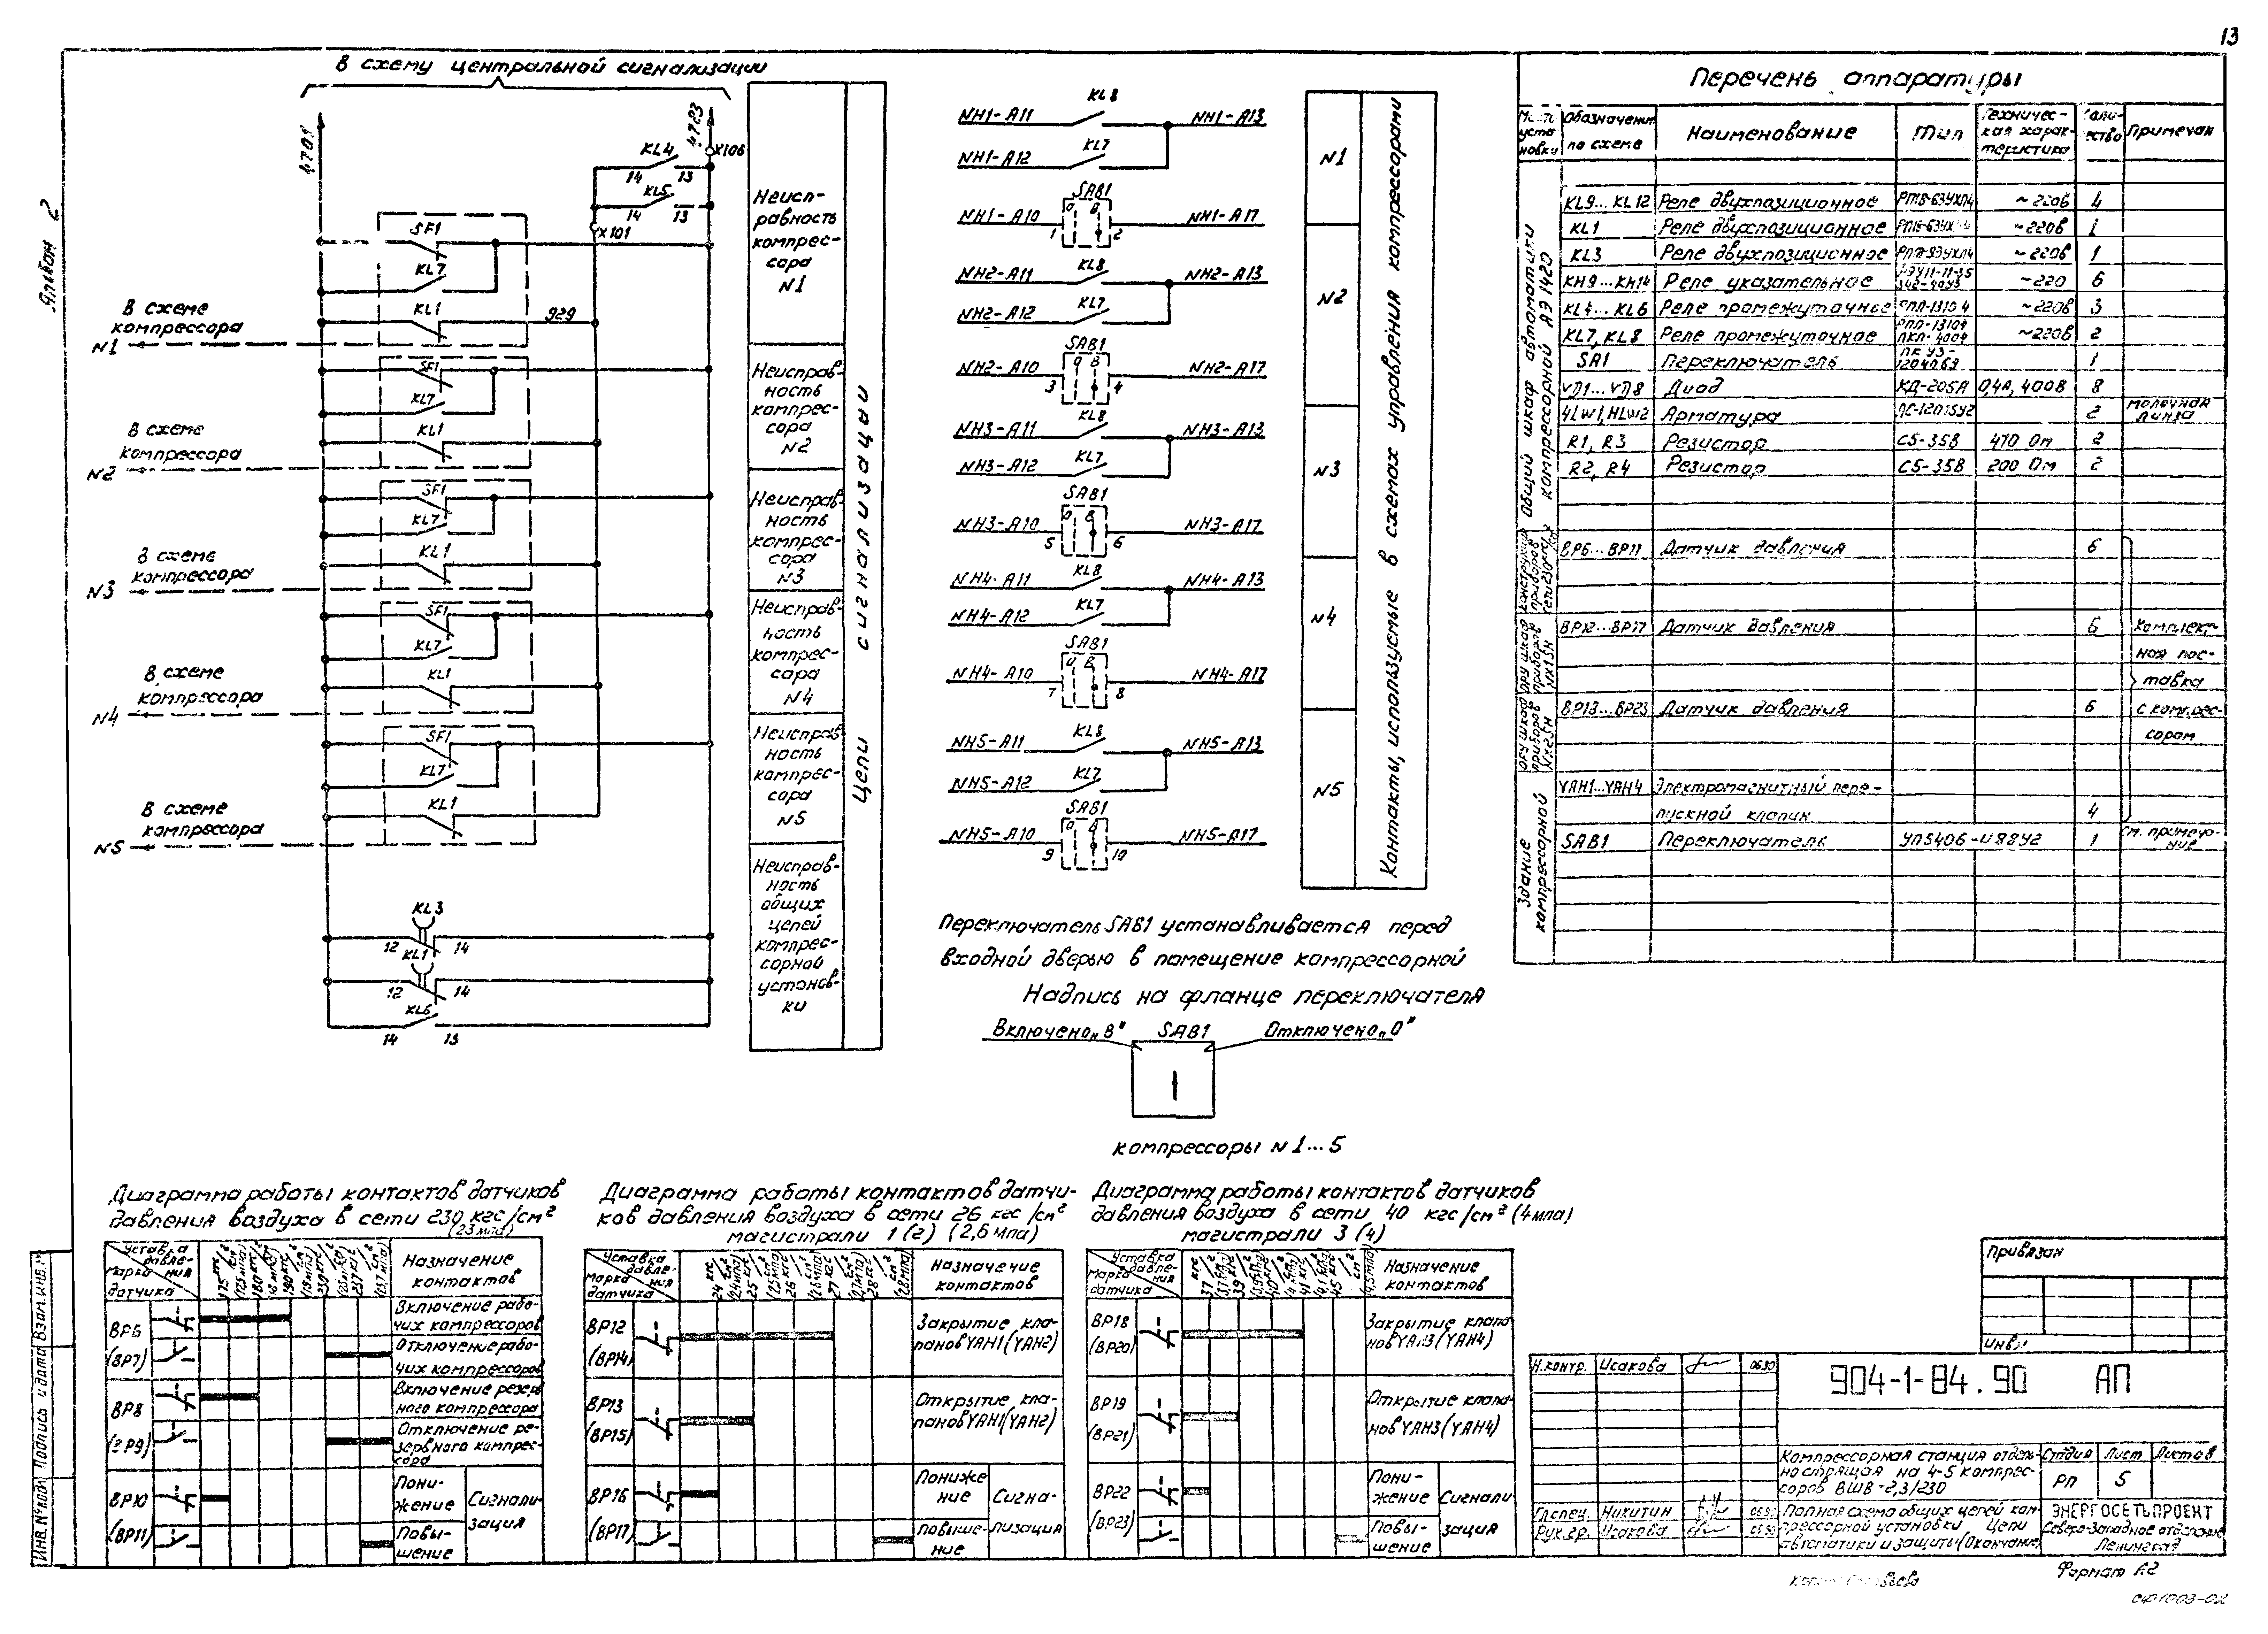 13
Альбом 2
В схему центральной сигнализации
4701
4723
KL4
X106
14 13
KL5
14 13
X101
SF1
KL7
KL1
929
В схеме
компрессора
N1
SF1
KL7
KL1
В схеме
компрессора
N2
SF1
KL7
KL1
В схеме
компрессора
N3
SF1
KL7
KL1
В схеме
компрессора
N4
SF1
KL7
KL1
В схеме
компрессора
N5
KL3
12 14
KL1
12 14
KL6
14 13
Неисп-
равность
компрес-
сора
N1
Неисправ-
ность
компрес-
сора
N2
Неисправ-
ность
компрес-
сора
N3
Неисправ-
ность
компрес-
сора
N4
Неисправ-
ность
компрес-
сора
N5
Неисправ-
ность
общих
цепей
компрес-
сорной
установ-
ки
Цепи сигнализации
NH1-A11 KL8 NH1-A13
NH1-A12 KL7
SAB1
NH1-A10 1 2 NH1-A17
NH2-A11 KL8 NH2-A13
NH2-A12 KL7
SAB1
NH2-A10 3 4 NH2-A17
NH3-A11 KL8 NH3-A13
NH3-A12 KL7
SAB1
NH3-A10 5 6 NH3-A17
NH4-A11 KL8 NH4-A13
NH4-A12 KL7
SAB1
NH4-A10 7 8 NH4-A17
NH5-A11 KL8 NH5-A13
NH5-A12 KL7
SAB1
NH5-A10 9 10 NH5-A17
N1
N2
N3
N4
N5
Контакты, используемые в схемах управления компрессорами
Переключатель SAB1 устанавливается перед
входной дверью в помещение компрессорной
Надпись на фланце переключателя
Включено „В" SAB1 Отключено „О"
компрессоры N 1...5
Перечень аппаратуры
Место установки
Обозначение по схеме
Наименование
Тип
Техничес-
кая харак-
теристика
Количество
Примечан
Общий шкаф автоматики компрессорной АЭ 1420
KL9...KL12 Реле двухпозиционное ~220В 4
KL1 Реле двухпозиционное ~220В 1
KL3 Реле двухпозиционное ~220В 1
KH9...KH14 Реле указательное ~220 6
KL4...KL6 Реле промежуточное РПЛ-13104 ~220В 3
KL7, KL8 Реле промежуточное РПЛ-13104 ПКЛ-4004 ~220В 2
SA1 Переключатель 1
VD1...VD8 Диод КД-205А 0,4А, 400В 8
HLW1, HLW2 Арматура 2 молочная линза
R1, R3 Резистор С5-35В 470 Ом 2
R2, R4 Резистор С5-35В 200 Ом 2
BP6...BP11 Датчик давления 6
BP12...BP17 Датчик давления 6
BP18...BP23 Датчик давления 6
Комплект-
ная пос-
тавка
с компрес-
сором
Здание компрессорной
YAH1...YAH4 Электромагнитный пере-
пускной клапан 4
SAB1 Переключатель УП5406-И88У2 1 см. примеча-
ние
Диаграмма работы контактов датчиков
давления воздуха в сети 230 кгс/см²
(23 мпа)
Уставка давле-
ния
Марка
датчика
Назначение
контактов
BP6
(BP7)
Включение рабо-
чих компрессоров
Отключение рабо-
чих компрессоров
BP8
(BP9)
Включение резерв
ного компрессора
Отключение ре-
зервного компрес-
сора
BP10
(BP11)
Пони-
жение
Повы-
шение
Сигнали-
зация
Диаграмма работы контактов датчи-
ков давления воздуха в сети 26 кгс/см²
магистрали 1(2) (2,6 мпа)
Уставка
давле-
ния
Марка
датчика
Назначение
контактов
BP12
(BP14)
Закрытие кла-
панов YAH1 (YAH2)
BP13
(BP15)
Открытие кла-
панов YAH1 (YAH2)
BP16
(BP17)
Пониже
ние
Повыше-
ние
Сигна-
лизация
Диаграмма работы контактов датчиков
давления воздуха в сети 40 кгс/см² (4 мпа)
магистрали 3 (4)
Уставка
давле-
ния
Марка
датчика
Назначение
контактов
BP18
(BP20)
Закрытие клапа
нов YAH3 (YAH4)
BP19
(BP21)
Открытие клапа-
нов YAH3 (YAH4)
BP22
(BP23)
Пони-
жение
Повы-
шение
Сигнали
зация
Привязан
Инв.№
Н.контр. Исакова 06.90
904-1-84.90 АП
Компрессорная станция отдель-
но стоящая на 4-5 компрес-
соров ВШВ-2,3/230
Стадия Лист Листов
РП 5
Гл.спец. Никитин 06.90
Рук.гр. Исакова 06.90
Полная схема общих цепей ком-
прессорной установки Цепи
автоматики и защиты (Окончание)
ЭНЕРГОСЕТЬПРОЕКТ
Северо-Западное отделение
Ленинград
Формат А2
Инв.№ подл. Подпись и дата Взам.инв.№